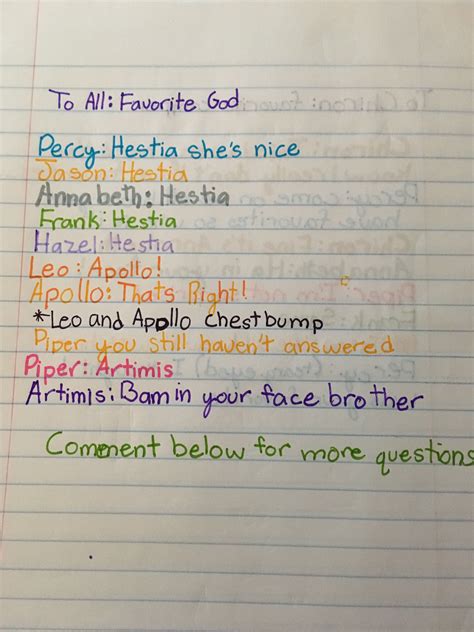 To All: Favorite God
Percy: Hestia she's nice
Jason: Hestia
Annabeth: Hestia
Frank: Hestia
Hazel: Hestia
Leo: Apollo!
Apollo: Thats Right!
*Leo and Apollo Chestbump
Piper you still haven't answered
Piper: Artimis
Artimis: Bam in your face brother
Comment below for more questions